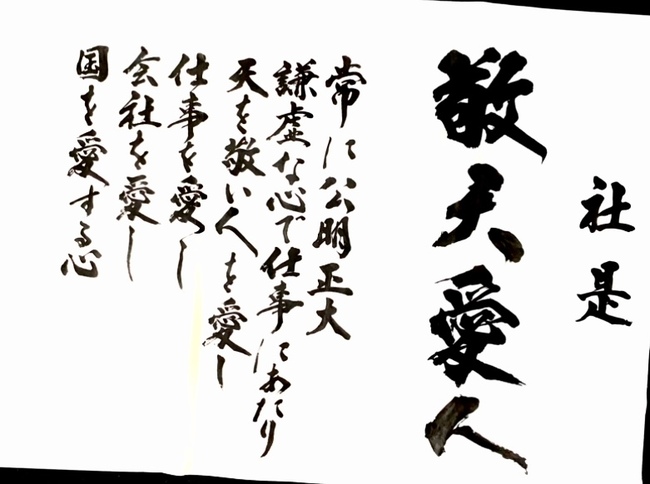 社是
敬天愛人
常に公明正大
謙虚な心で仕事にあたり
天を敬い人を愛し
仕事を愛し
会社を愛し
国を愛する心